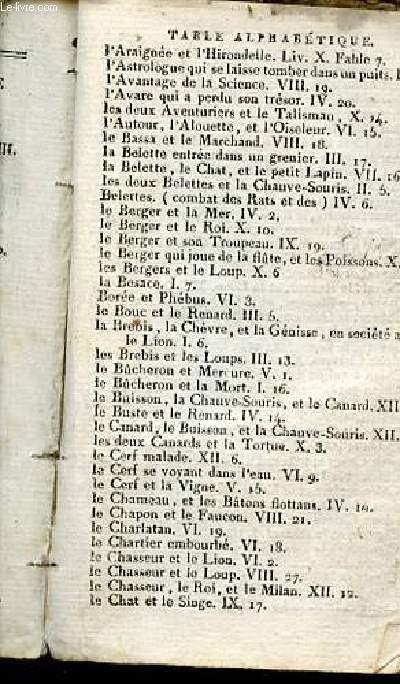 © Le-livre.com
TABLE ALPHABÉTIQUE.
l'Araignée et l'Hirondelle. Liv. X. Fable 7.
l'Astrologue qui se laisse tomber dans un puits.
l'Avantage de la Science. VIII. 19.
l'Avare qui a perdu son trésor. IV. 20.
les deux Aventuriers et le Talisman, X. 14.
l'Autour, l'Alouette, et l'Oiseleur. VI. 15.
le Bassa et le Marchand. VIII. 18.
la Belette entrée dans un grenier. III. 17.
la Belette, le Chat, et le petit Lapin. VII. 16
les deux Belettes et la Chauve-Souris. II. 5.
Belettes. ( combat des Rats et des ) IV. 6.
le Berger et la Mer. IV. 2.
le Berger et le Roi. X. 10.
le Berger et son Troupeau. IX. 19.
le Berger qui joue de la flûte, et les Poissons. X.
les Bergers et le Loup. X. 6
la Besace. I. 7.
Borée et Phébus. VI. 3.
le Bouc et le Renard. III. 5.
la Brebis, la Chèvre, et la Génisse, en société a
le Lion. I. 6.
les Brebis et les Loups. III. 13.
le Bûcheron et Mercure. V. 1.
le Bûcheron et la Mort. I. 16.
le Buisson, la Chauve-Souris, et le Canard. XII
le Buste et le Renard. IV. 14.
le Canard, le Buisson, et la Chauve-Souris. XII.
les deux Canards et la Tortue. X. 3.
le Cerf malade. XII. 6.
le Cerf se voyant dans l'eau. VI. 9.
le Cerf et la Vigne. V. 15.
le Chameau, et les Bâtons flottans. IV. 10.
le Chapon et le Faucon. VIII. 21.
le Charlatan. VI. 19.
le Chartier embourbé. VI. 18.
le Chasseur et le Lion. VI. 2.
le Chasseur et le Loup. VIII. 27.
le Chasseur, le Roi, et le Milan. XII. 12.
le Chat et le Singe. IX. 17.